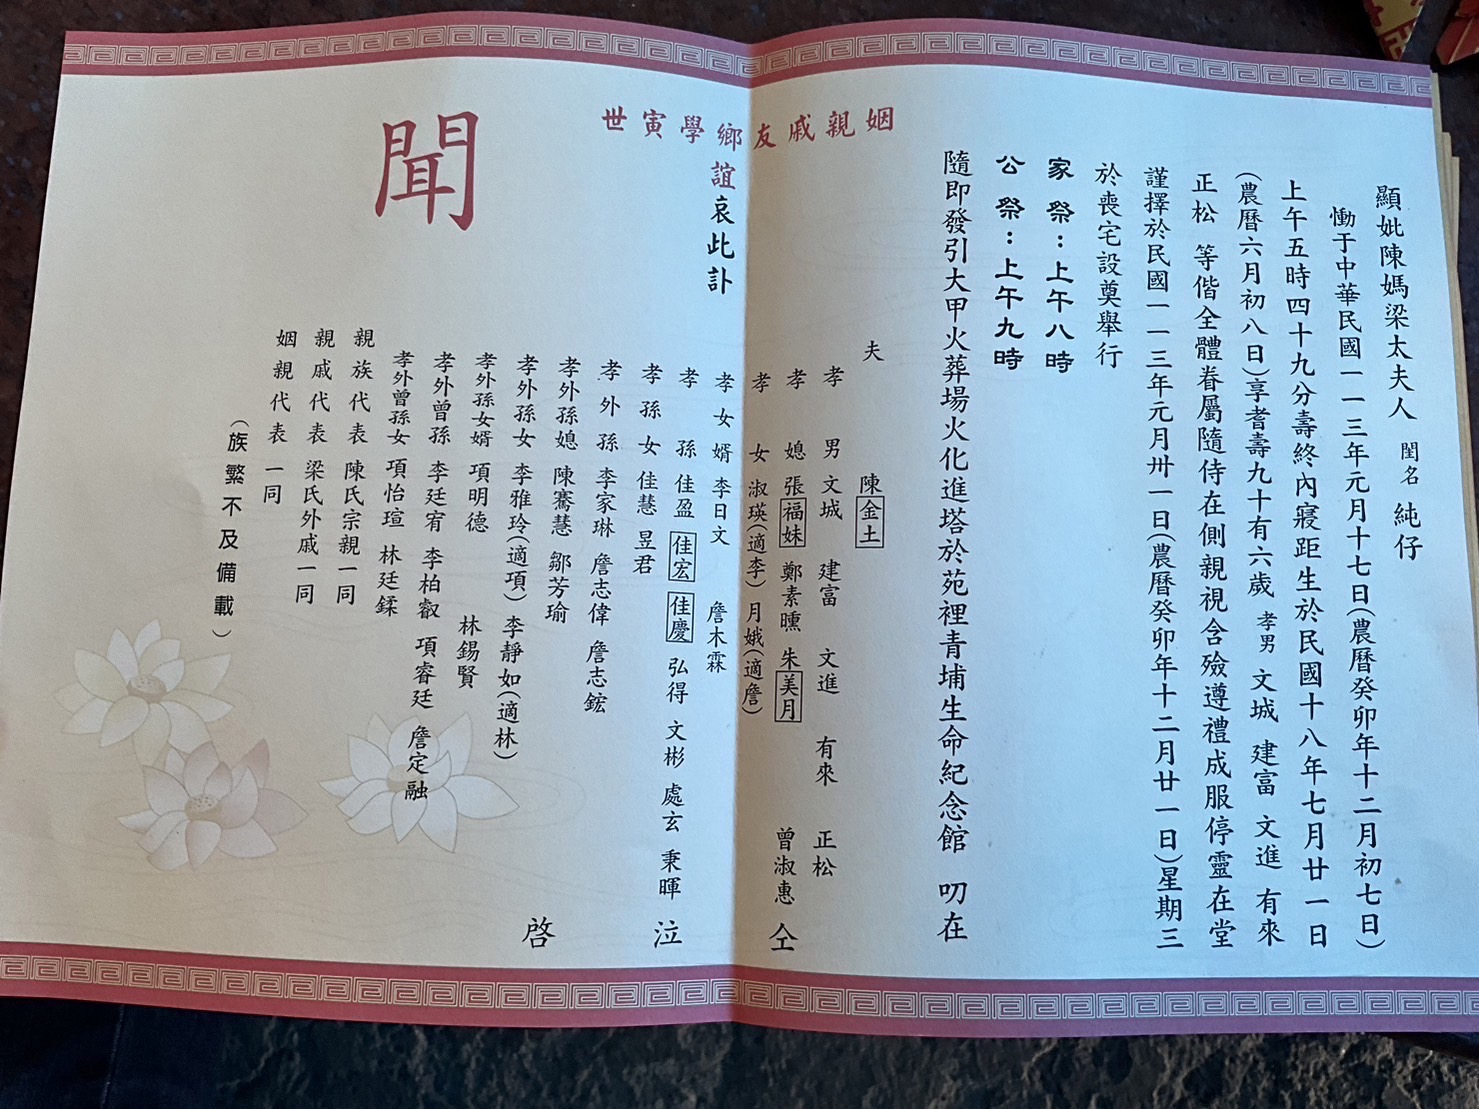 顯妣陳媽梁太夫人 閨名 純仔
慟于中華民國一一三年元月十七日(農曆癸卯年十二月初七日)
上午五時四十九分壽終內寢距生於民國十八年七月廿一日
(農曆六月初八日)享耆壽九十有六歲 孝男 文城 建富 文進 有來
正松 等偕全體眷屬隨侍在側親視含殮遵禮成服停靈在堂
謹擇於民國一一三年元月卅一日(農曆癸卯年十二月廿一日)星期三
於喪宅設奠舉行
家祭：上午八時
公祭：上午九時
隨即發引大甲火葬場火化進塔於苑裡青埔生命紀念館 叨在
姻親戚友鄉學寅世
誼哀此訃
聞
夫 陳金土
孝男 文城 建富 文進 有來 正松
孝媳 張福妹 鄭素曛 朱美月 曾淑惠 仝
孝女 淑瑛(適李) 月娥(適詹)
孝女婿 李日文 詹木霖
孝孫 佳盈 佳宏 佳慶 弘得 文彬 處玄 秉暉
孝孫女 佳慧 昱君 泣
孝外孫 李家琳 詹志偉 詹志鋐
孝外孫媳 陳騫慧 鄒芳瑜
孝外孫女 李雅玲(適項) 李靜如(適林) 啓
孝外孫女婿 項明德 林錫賢
孝外曾孫 李廷宥 李柏叡 項睿廷 詹定融
孝外曾孫女 項怡瑄 林廷鍒
親族代表 陳氏宗親一同
親戚代表 梁氏外戚一同
姻親代表 一同
(族繁不及備載)